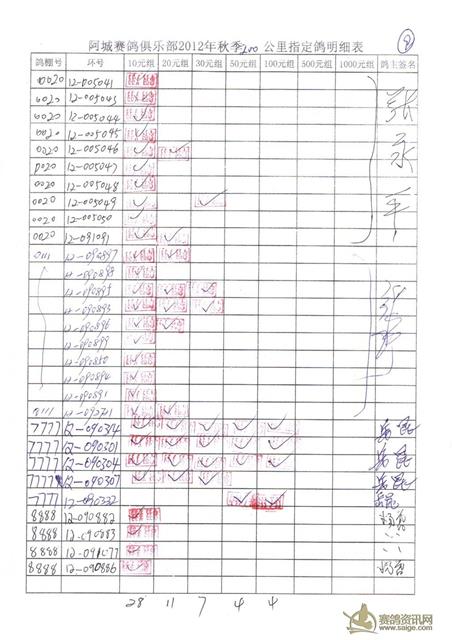 阿城赛鸽俱乐部2012年秋季200公里指定鸽明细表 8
鸽棚号 环号 10元组 20元组 30元组 50元组 100元组 500元组 1000元组 鸽主签名
0020 12-005041
0020 12-005043
0020 12-005044
0020 12-005095
0020 12-005046
0020 12-005047
0020 12-005048
0020 12-005049
0020 12-005050
0020 12-091091
0111 12-090897
12-090898
12-090895
12-090893
12-090896
12-090899
12-090850
12-090894
12-090891
0111
7777 12-090314 岳昆
7777 12-090301 岳昆
7777 12-090304 岳昆
7777 12-090307 岳昆
7777 12-090332 岳昆
8888 12-090882
8888 12-090883
8888 12-091077
8888 12-090886
28 11 7 4 4
赛鸽资讯网
www.saige.com